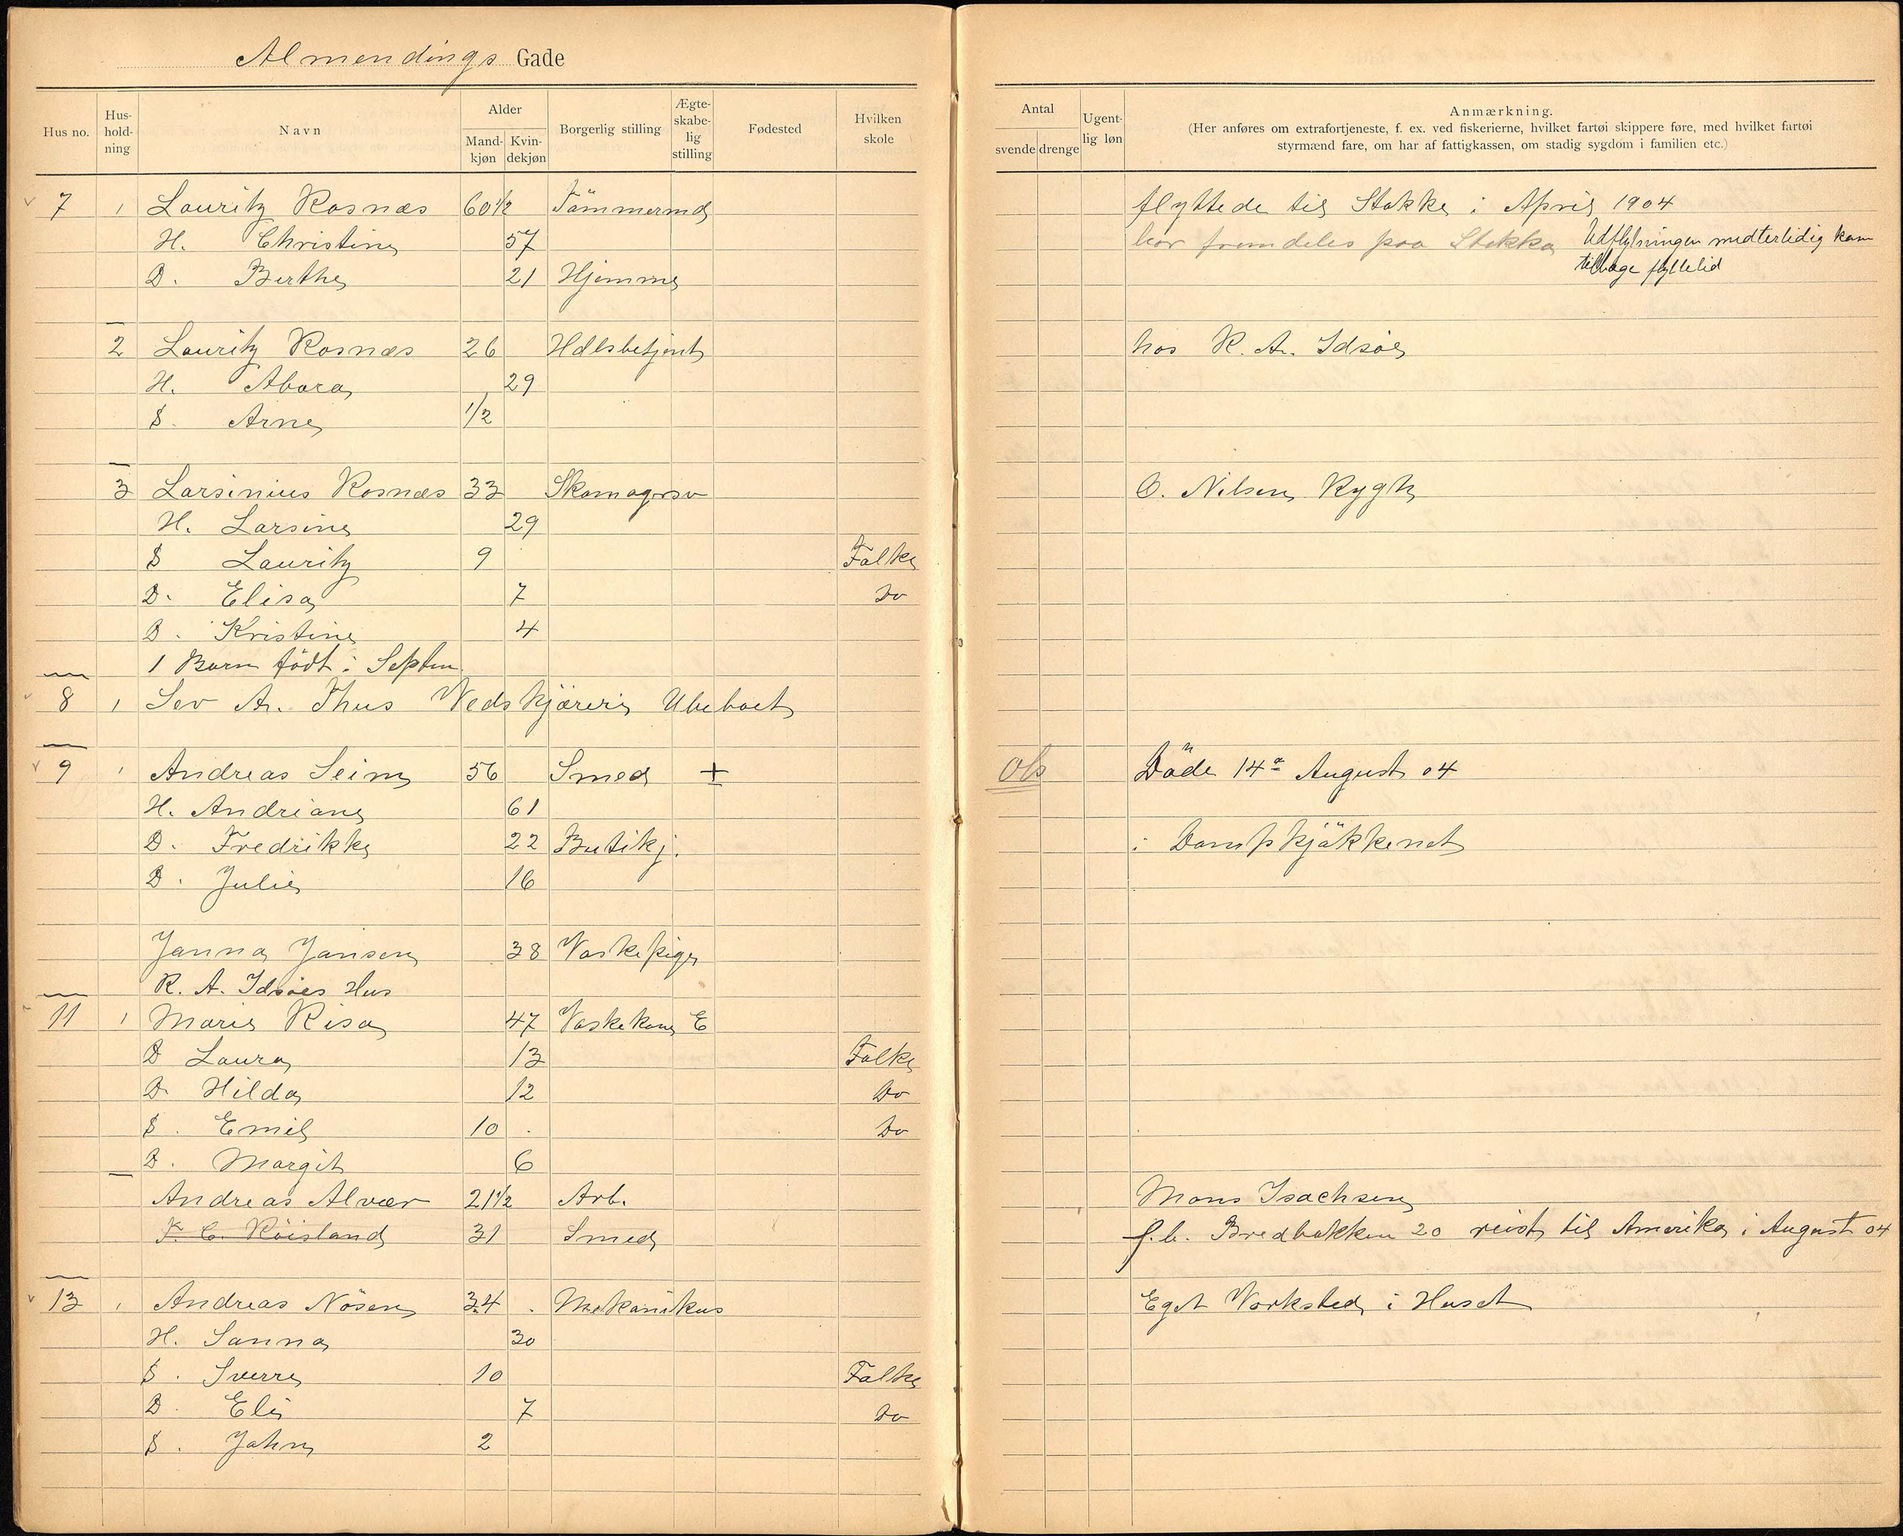 Almendings Gade
Hus no. Hus-hold-ning Navn Alder Mand-kjøn Kvin-dekjøn Borgerlig stilling Ægte-skabe-lig stilling Fødested Hvilken skole
Antal svende drenge Ugent-lig løn Anmærkning.
(Her anføres om extrafortjeneste, f. ex. ved fiskerierne, hvilket fartøi skippere føre, med hvilket fartøi
styrmænd fare, om har af fattigkassen, om stadig sygdom i familien etc.)
7 1 Lauritz Rosnæs 60 1/2 Tömmermd flyttede til Stokke i April 1904
H. Christine 57 bor fremdeles paa Stokka Udflytningen midterlidig kom
D. Berthe 21 Hjemme tilbage flyttetid
2 Lauritz Rosnæs 26 Hdlsbetjent hos R. A. Idsöe
H. Abara 29
S. Arne 1/2
3 Larsinius Rosnæs 33 Skomagersv O. Nilsen Rygh
H. Larsine 29
S Lauritz 9 Folke
D. Elisa 7 Do
D. Kristine 4
1 Barn födt i Septem.
8 1 Sev A. Thus Vedskjæreri Ubeboet
9 1 Andreas Seim 56 Smed + ob Döde 14de August 04
H. Andriane 61
D. Fredrikke 22 Butikj. i Dampkjökkenet
D. Julie 16
Janna Jansen 38 Vaskepige
R. A. Idsöes Hus
11 1 Marie Risa 47 Vaskekone E
D Laura 13 Folke
D. Hilda 12 Do
S. Emil 10 Do
D. Margit 6
Andreas Alvær 21 1/2 Arb. Mons Isachsen
K. C. Röisland 31 Smed f.b. Bredbakken 20 reist til Amerika i August 04
13 1 Andreas Nösen 34 Mekanikus Eget Værksted i Huset
H. Sanna 30
S. Sverre 10 Folke
D. Eli 7 Do
S. John 2